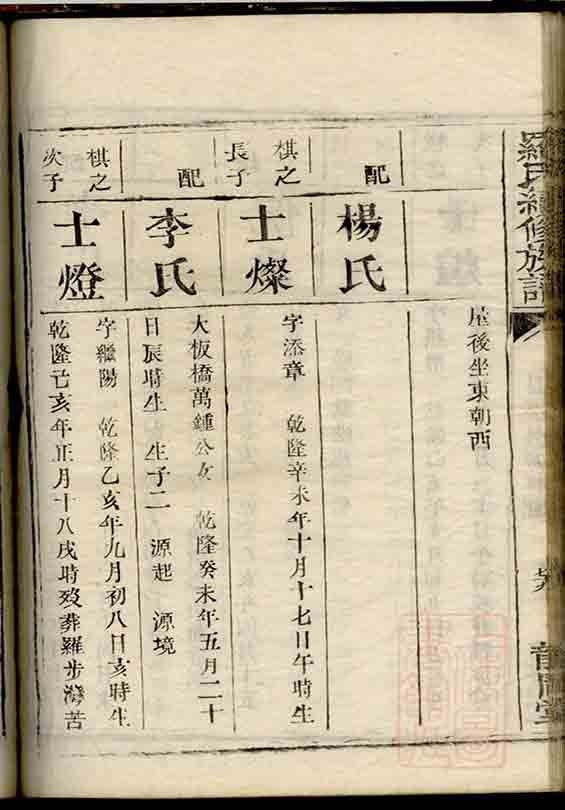 羅氏續修族譜
屋後坐東朝西
配
楊氏
棋之
長子
士燦
字添章 乾隆辛未年十月十七日午時生
配
李氏
大板橋萬鍾公女 乾隆癸未年五月二十
日辰時生 生子二 源起 源境
棋之
次子
士燈
字繼陽 乾隆乙亥年九月初八日亥時生
乾隆己亥年正月十八戌時歿葬羅步灣苦